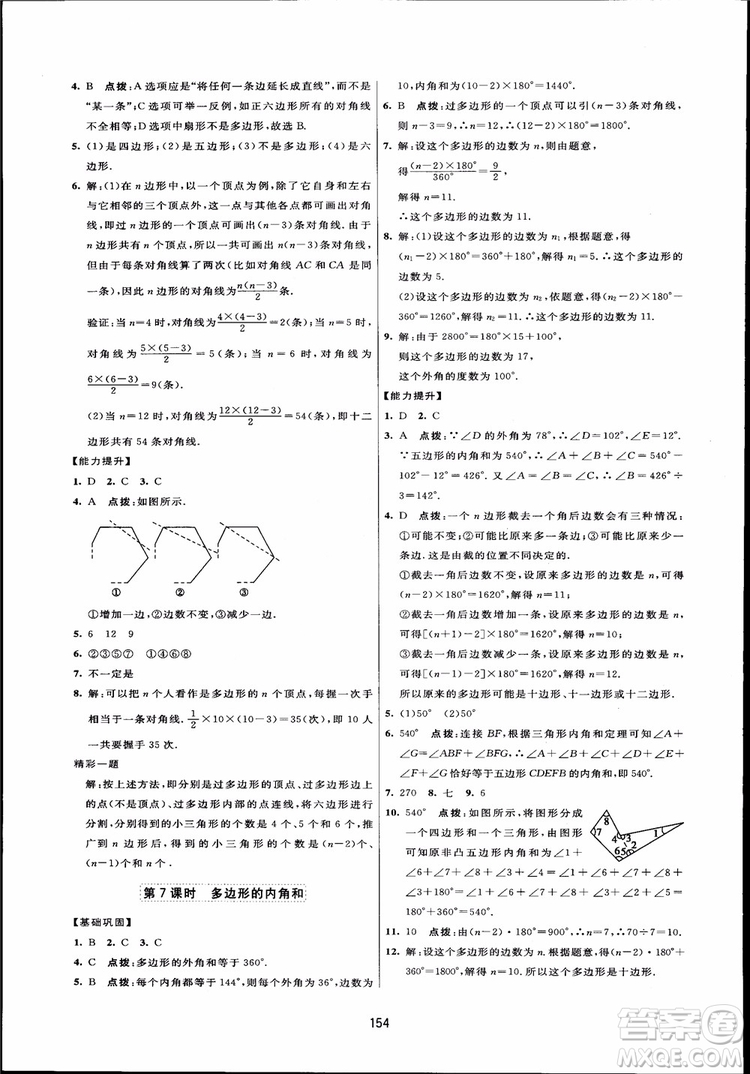 4. B 点拨:A选项应是“将任何一条边延长成直线”,而不是
“某一条”;C选项可举一反例,如正六边形所有的对角线
不全相等;D选项中扇形不是多边形,故选B.
5. (1)是四边形;(2)是五边形;(3)不是多边形;(4)是六
边形.
6. 解:(1)在n边形中,以一个顶点为例,除了其自身和左右
与它相邻的三个顶点外,与其他各点都可画出一条对角
线,即过n边形的一个顶点可以画(n-3)条对角线.由于
n边形共有n个顶点,所以n个顶点共有n(n-3)条对角线.
但由于每条对角线算了两次(比如对角线AC和CA是同
一条),因此n边形的对角线为n(n-3)/2条.
验证:当n=4时,对角线为4×(4-3)/2=2(条);当n=5时,
对角线为5×(5-3)/2=5(条);当n=6时,对角线为
6×(6-3)/2=9(条).
(2)当n=12时,对角线为12×(12-3)/2=54(条),即十二
边形共有54条对角线.
【能力提升】
1. D 2. C 3. C
4. A 点拨:如图所示.
① ② ③
①增加一边,②边数不变,③减少一边.
5. 6 12 9
6. ②③⑤⑦ ①④⑥
7. 不一定是
8. 解:可以把n个人看作是多边形的n个顶点,每握一次手
相当于一条对角线.1/2×10×(10-3)=35(次),即10人
一共要握手35次.
精彩一题
解:按上述方法,即分别是过多边形的顶点,过多边形边上
的点(除顶点),过多边形内部的点连线,将六边形进行
分割,分割得到的小三角形的个数是4个,5个,6个.推广
到n边形后,得到的小三角形的个数是(n-2)个,
(n-1)个,n个.
第7课时 多边形的内角和
【基础巩固】
1. B 2. C 3. C
4. C 点拨:多边形的外角和等于360°.
5. B 点拨:每个内角都等于144°,则每个外角都为36°,边数为
10,内角和为(10-2)×180°=1440°.
6. B 点拨:过多边形的一个顶点可以引(n-3)条对角线,
则n-3=9,∴n=12,∴(12-2)×180°=1800°.
7. 解:设这个多边形的边数为n,由题意,
得(n-2)×180°/360°=9/2,
解得n=11.
∴这个多边形的边数为11.
8. 解:(1)设这个多边形的边数为n₁,根据题意得
(n₁-2)×180°=360°+180°,解得n₁=5.∴这个多边形的
边数为5.
(2)设这个多边形的边数为n₂,依题意,得(n₂-2)×180°+
360°=1260°,解得n₂=7.∴这个多边形的边数为7.
9. 解:由于2800°=180°×15+100°,
则这个多边形的边数为17,
这个外角的度数为100°.
【能力提升】
1. D 2. C
3. A 点拨:∵∠D的外角为78°,∴∠D=180°-78°=102°.
∵五边形的内角和为540°,∴∠A+∠B+∠C+∠E=540°-
102°-12°=426°.又∠A=∠B=∠C,∴∠A=426°÷
3=142°.
4. D 点拨:一个n边形截去一个角后边数会有三种情况:
①可能不变;②可能比原来多一条;③可能比原来少一
条.这是由于截的位置不同决定的.
①截去一角后边数不变,设原来多边形的边数为n,可得
(n-2)×180°=1620°,解得n=11.
②截去一角后边数增加一条,设原来多边形的边数为n,
可得[(n+1)-2]×180°=1620°,解得n=10.
③截去一角后边数减少一条,设原来多边形的边数为n,
可得[(n-1)-2]×180°=1620°,解得n=12.
所以原来的多边形可能是十边形、十一边形或十二边形.
5. (1)50° (2)50°
6. 540° 点拨:连接BF,根据三角形内角和定理可知∠A+
∠G=∠ABF+∠BFG,∴∠A+∠B+∠C+∠D+∠E+
∠F+∠G恰好等于五边形CDEFB的内角和,即540°.
7. 270 8. 七 9. 6
10. 540° 点拨:如图所示,将图形分成
一个四边形和一个三角形,由图形
可知非凸五边形内角和为∠1+
∠2+∠3+∠4+∠5+∠6+
∠7+∠8=180°+360°=540°.
8 7 4 3 1 2 5 6
11. 10 点拨:由(n-2)·180°=900°,∴n=7,∴70÷7=10.
12. 解:设这个多边形的边数为n.根据题意,可得(n-2)·180°+
360°=1800°,解得n=10.所以这个多边形是十边形.
154
答案卷
MXQE.COM